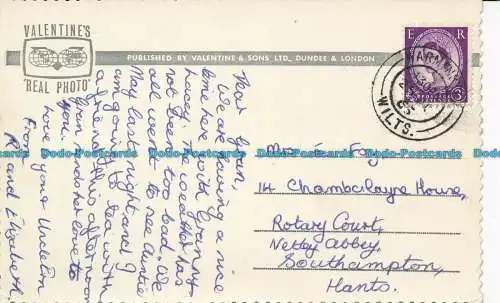 VALENTINE'S
"REAL PHOTO"
PUBLISHED BY VALENTINE & SONS LTD., DUNDEE & LONDON
E R
WILTS.
Dear Gran,
We are having a nice
time here with Granny
Lacey. The weather has
not been too bad. We
all went to see Auntie
May last night and I
am going to tea with
a friend this afternoon
Gran sends her love to
you.
Love
From your
R and Elizabeth
14 Chamberlayne House,
Rotary Court,
Netley Abbey,
Southampton,
Hants.
Dodo-Postcards Dodo-Postcards Dodo-Postcards Dodo-Postcards Dodo-Postcards